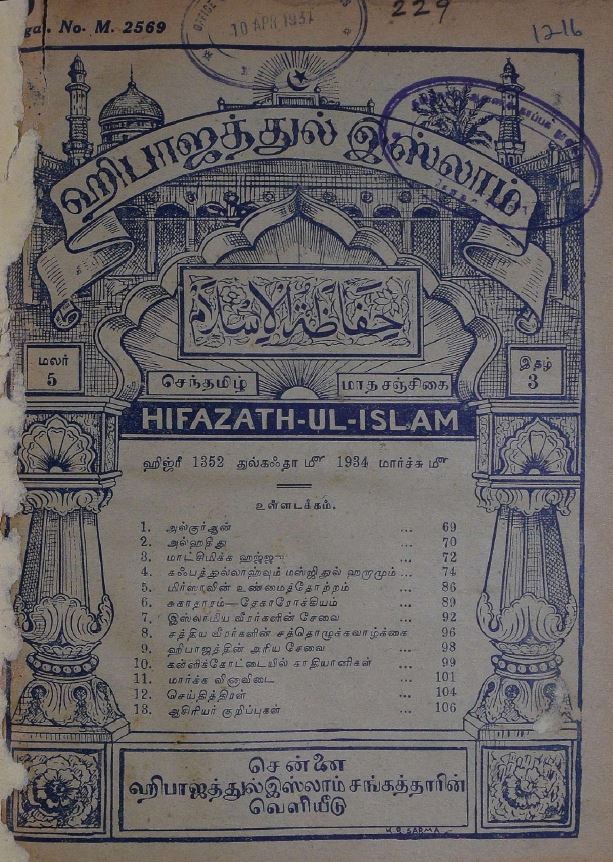 No. M. 2569
10 APR 1937
229
1216
ஹிபாஜத்துல் இஸ்லாம்
حفاظة الإسلام
மலர்
5
இதழ்
3
செந்தமிழ் மாதசஞ்சிகை
HIFAZATH-UL-ISLAM
ஹிஜ்ரீ 1352 துல்கஃதா மீ 1934 மார்ச்சு மீ
உள்ளடக்கம்.
1. அல்குர்ஆன் ... 69
2. அல்ஹதீது ... 70
3. மாட்சிமிக்க ஹஜ்ஜு ... 72
4. கஃபத்துல்லாஹ்வும் மஸ்ஜிதுல் ஹரமும் ... 74
5. மிர்ஸாவின் உண்மைத்தோற்றம் ... 86
6. சுகாதாரம்—தேகாரோக்கியம் ... 89
7. இஸ்லாமிய வீரர்களின் சேவை ... 92
8. சத்திய வீரர்களின் சத்தொழுக்கவாழ்க்கை 96
9. ஹிபாஜத்தின் அரிய சேவை ... 98
10. கள்ளிக்கோட்டையில் காதியானிகள் ... 99
11. மார்க்க வினாவிடை ... 101
12. செய்தித்திரள் ... 104
13. ஆசிரியர் குறிப்புகள் ... 106
சென்னை
ஹிபாஜத்துல்இஸ்லாம் சங்கத்தாரின்
வெளியீடு
K.R. SARMA